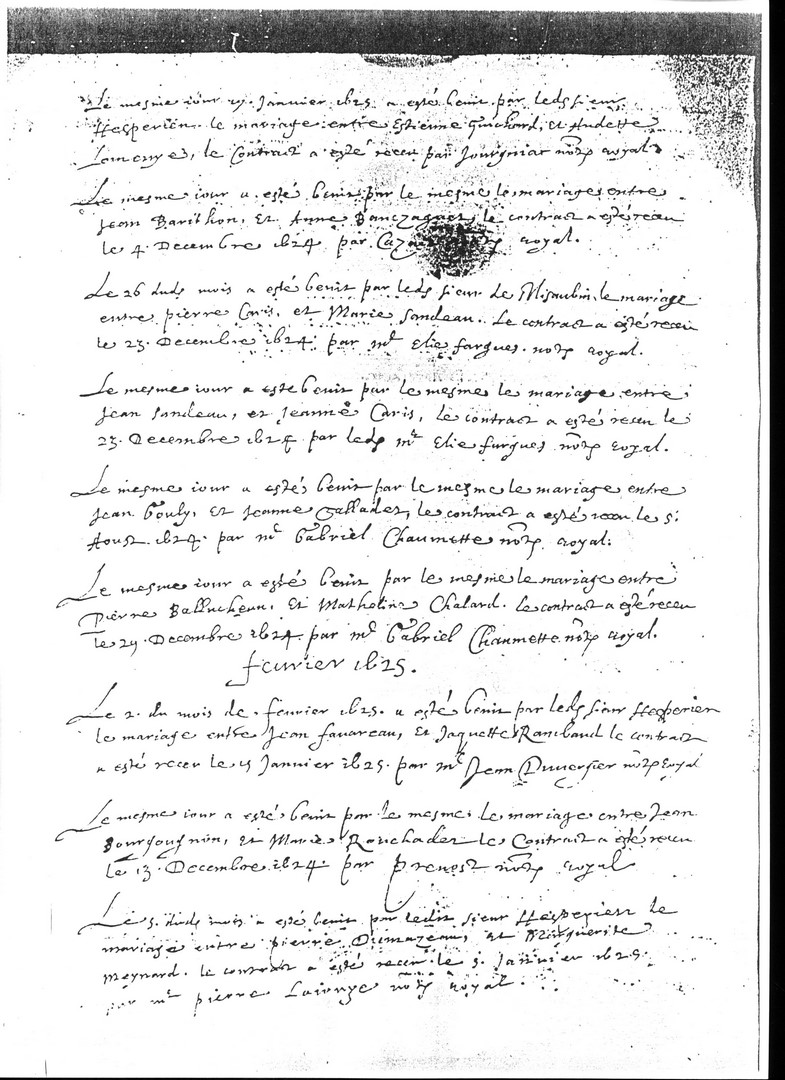 Le mesme iour 19. Janvier 1625 a esté benit par leds sieur
Hesperien le mariage entre Estienne Guichard, et Audette
le Contract a esté receu par Jourgniac notre royal.
Le mesme iour a esté benit par le mesme le mariage entre
Jean Barithon, et Anne le contract a esté receu
le 4. Decembre 1624 par royal.
Le 26 duds mois a esté benit par leds sieur de Misaubin le mariage
entre pierre Caris, et Marie Sandeau. Le contract a esté receu
le 23. Decembre 1624. par mr Elie fargues. notre royal.
Le mesme iour a esté benit par le mesme le mariage entre
Jean Sandeau, et Jeanne Caris, le contract a esté receu le
23. Decembre 1624 par leds mr Elie fargues notre royal.
Le mesme iour a esté benit par le mesme le mariage entre
Jean Gouly, et Jeanne Gallader, le contract a esté receu le 5.
Aoust 1624. par mr Gabriel Chaumette notre royal.
Le mesme iour a esté benit par le mesme le mariage entre
Pierre et Matheline Chalard. le contract a esté receu
le 29. Decembre 1624 par mr Gabriel Chaumette notre royal.
fevrier 1625.
Le 2. du mois de fevrier 1625. a esté benit par leds sieur Hesperien
le mariage entre Jean favareau, et Jaquette Rambaud le contract
a esté receu le 15 Janvier 1625. par mr Jean Duvergier notre royal
Le mesme iour a esté benit par le mesme le mariage entre Jean
Bourgougnon, et Marie le Contract a esté receu
le 13. Decembre 1624. par prevost notre royal
Le 5. duds mois a esté benit par ledit sieur Hesperien le
mariage entre pierre Dumazeau, et Marguerite
Meynard. le contract a esté receu le 5. Janvier 1625
par mr pierre notre royal.